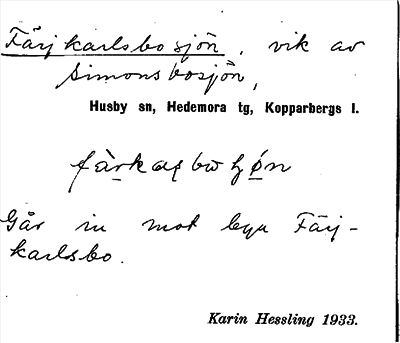 Färjkarlsbosjön, vik av
Simonsbosjön,
Husby sn, Hedemora tg, Kopparbergs l.
Går in mot byn Färj-
karlsbo.
Karin Hessling 1933.